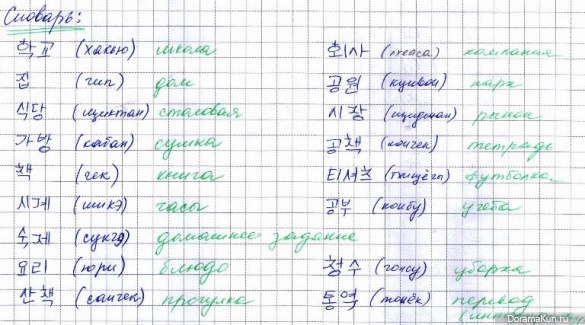 Словарь:
학교 (хакью) школа
집 (чип) дом
식당 (щиктан) столовая
가방 (кабан) сумка
책 (чек) книга
시계 (шикэ) часы
숙제 (сукчэ) домашнее задание
요리 (юри) блюдо
산책 (санчек) прогулка
회사 компания
공원 парк
시장 рынок
공책 (кончек) тетрадь
티셔츠 футболка
공부 (конбу) учеба
청수 (чонсу) уборка
통역 (тонёк) перевод
DoramaKun.ru